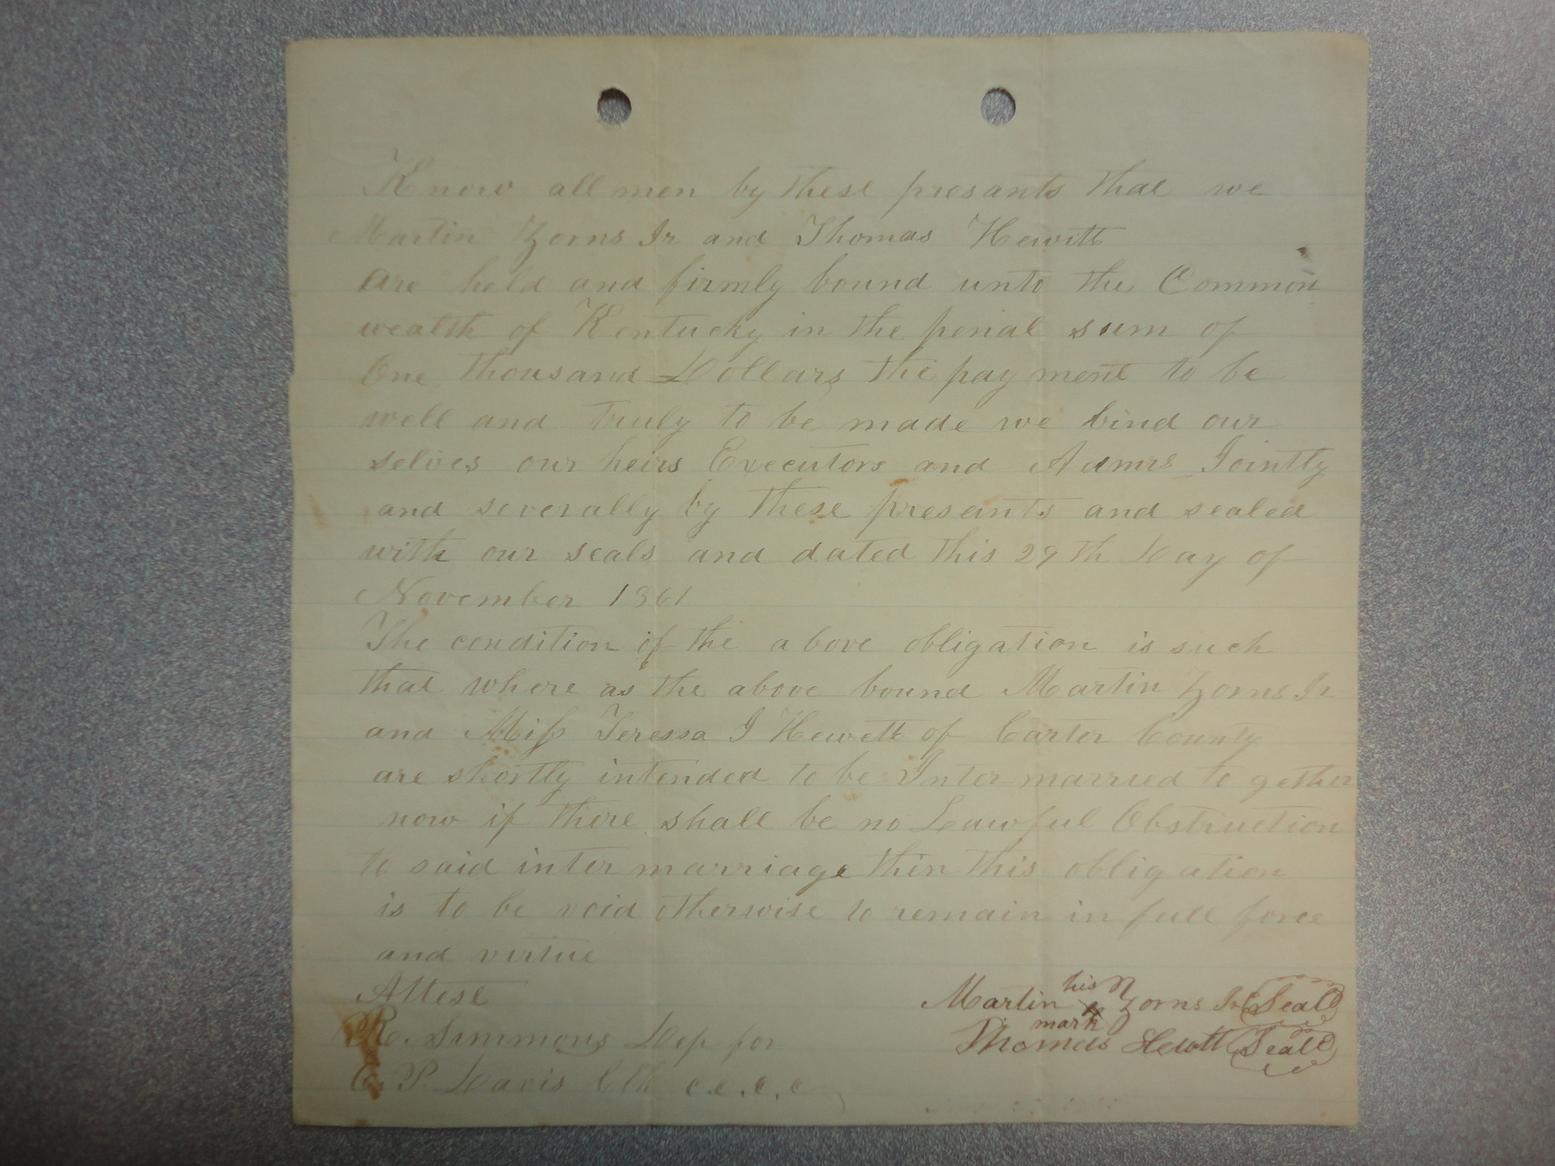 Know all men by these presants that we
Martin Zorns Jr and Thomas Hewitt
are held and firmly bound unto the Common
wealth of Kentucky in the penal sum of
One thousand Dollars the pay ment to be
well and truly to be made we bind our
selves our heirs Executors and Admrs Jointly
and severally by these presants and sealed
with our seals and dated this 29th Day of
November 1861
The condition of the above obligation is such
that where as the above bound Martin Zorns Jr
and Miss Teressa J Hewett of Carter County
are shortly intended to be Inter married to gether
now if there shall be no Lawful Obstruction
to said inter marriage then this obligation
is to be void otherwise to remain in full force
and virtue
Attest
R. Simmons Dep for
C. P. Davis Clk c.c.c.c
his
Martin X Zorns Jr Seal
mark
Thomas Hewtt Seal